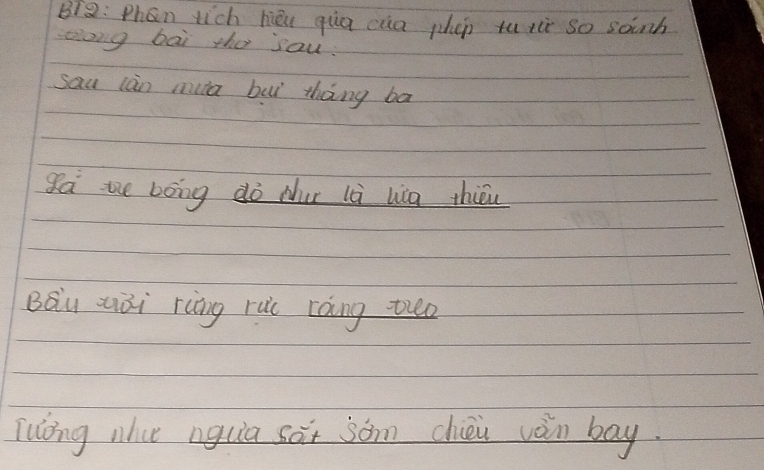 BT2: Phân tích hiệu quả của phép tu từ so sánh
trong bài thơ sau:
Sau làn mưa bụi tháng ba
Lá tre bỗng đỏ như là lửa thiêu
Bầu trời rừng rực ráng treo
Tưởng như ngựa sắt sớm chiều vẫn bay.